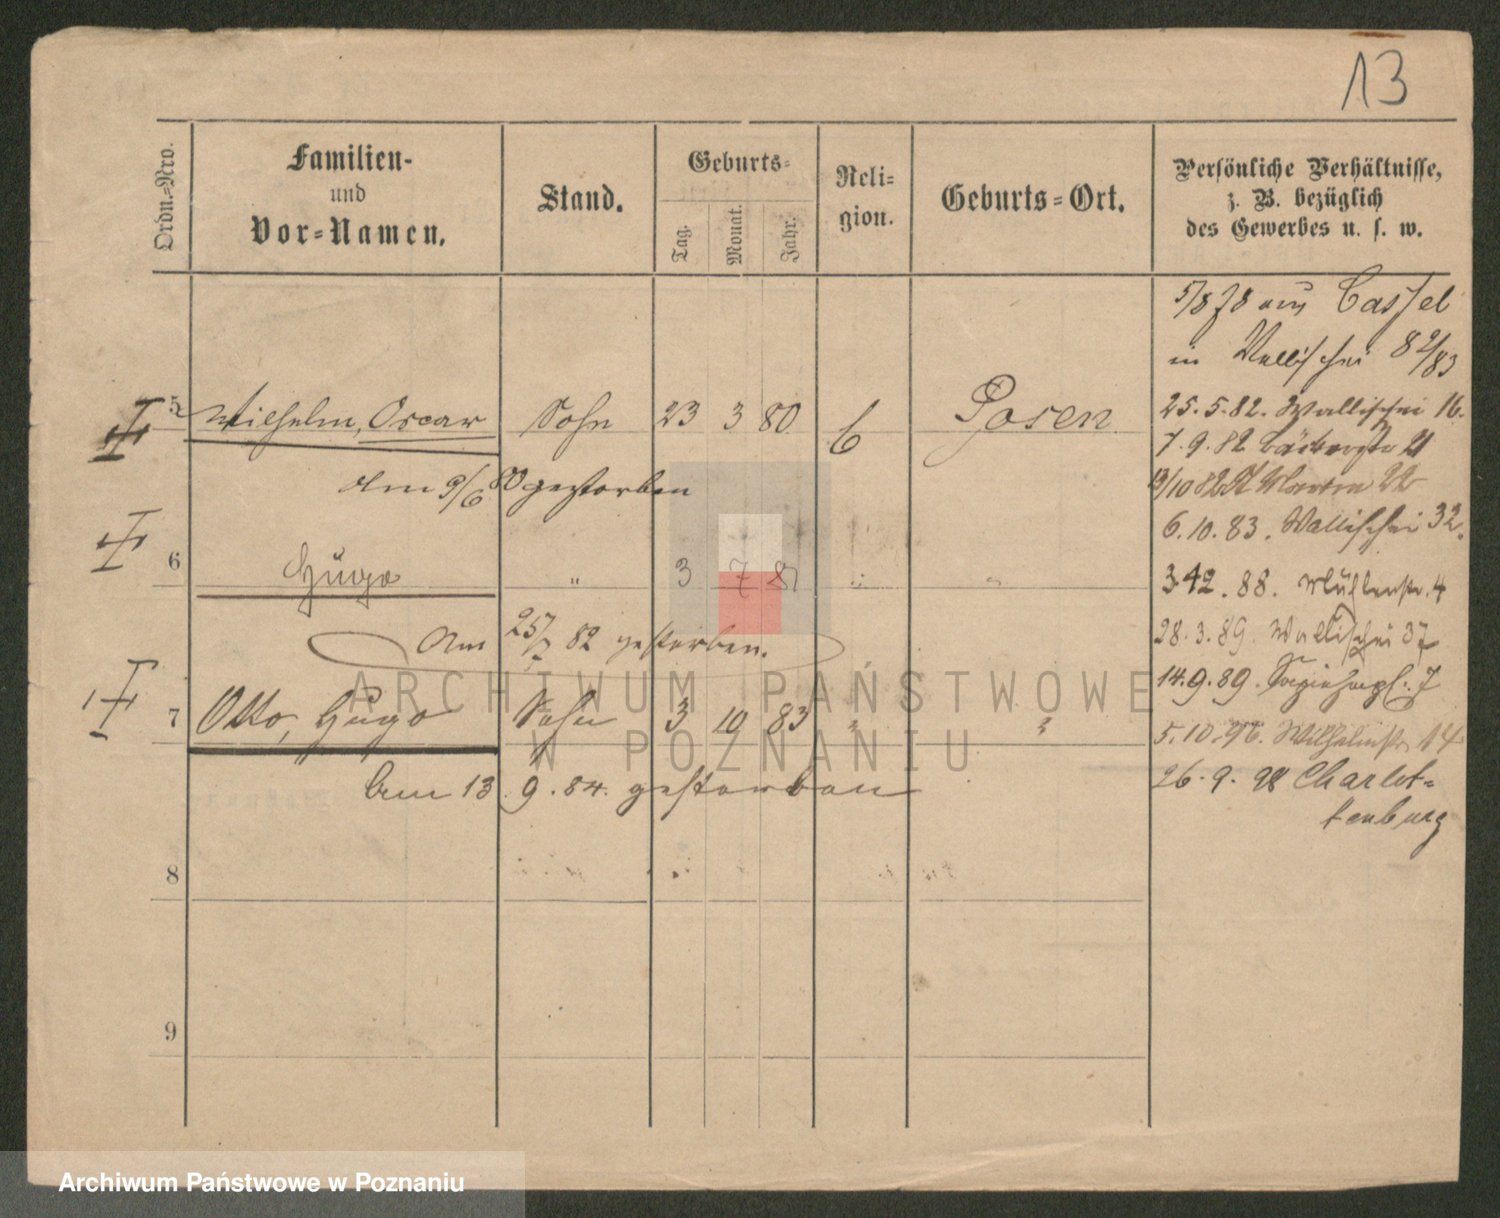 13
Ordn.-Nro.
Familien-
und
Vor-Namen.
Stand.
Geburts-
Tag.
Monat.
Jahr.
Reli-
gion.
Geburts-Ort.
Persönliche Verhältnisse,
z. B. bezüglich
des Gewerbes u. s. w.
5/8 78 aus Cassel
in Wallischei 82/83
5 Wilhelm, Oscar Sohn 23 3 80 Posen
25.5.82. Wallischei 16.
7.9.82 Bäckerstr 21
am 9/6 80 gestorben
13/10 82 22
6.10.83. Wallischei 32.
6 Hugo " 3 7 81 " "
3.12.88. Mühlenstr. 4
Am 25/7 82 gestorben.
28.3.89. Wallischei 37
14.9.89. Sapiehapl. 7
ARCHIWUM PAŃSTWOWE
W POZNANIU
7 Otto, Hugo Sohn 3 10 83 " "
5.10.96. Wilhelmstr 14
Am 13.9.84. gestorben
26.9.98 Charlot-
tenburg
8
9
Archiwum Państwowe w Poznaniu